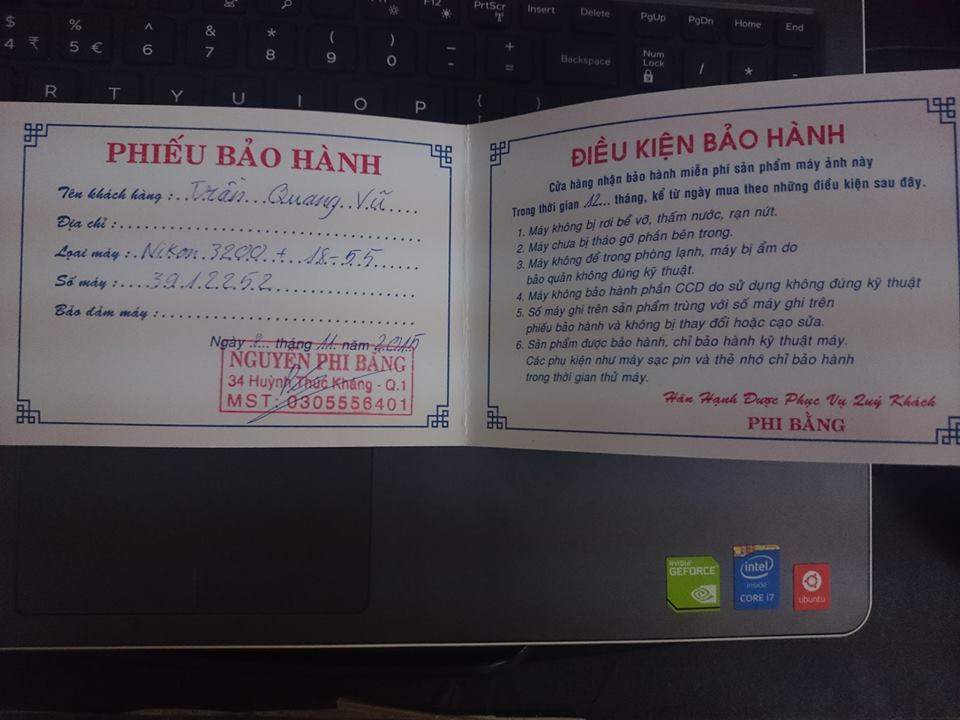 PrtScr
Insert
Delete
PgUp
PgDn
Home
End
$ % ^ & * ( ) - +
4 ₹ 5 € 6 7 8 9 0 - =
Backspace
Num Lock
/ * -
R T Y U I O P { }
PHIẾU BẢO HÀNH
Tên khách hàng : Trần Quang Vũ
Địa chỉ :
Loại máy : Nikon 3200 + 18-55
Số máy : 3912252
Bảo đảm máy :
Ngày tháng 11 năm 2015
NGUYỄN PHI BẰNG
34 Huỳnh Thúc Kháng - Q.1
MST: 0305556401
ĐIỀU KIỆN BẢO HÀNH
Cửa hàng nhận bảo hành miễn phí sản phẩm máy ảnh này
Trong thời gian 12 tháng, kể từ ngày mua theo những điều kiện sau đây.
1. Máy không bị rơi bể vỡ, thấm nước, rạn nứt.
2. Máy chưa bị tháo gỡ phần bên trong.
3. Máy không để trong phòng lạnh, máy bị ẩm do
bảo quản không đúng kỹ thuật.
4. Máy không bảo hành phần CCD do sử dụng không đúng kỹ thuật
5. Số máy ghi trên sản phẩm trùng với số máy ghi trên
phiếu bảo hành và không bị thay đổi hoặc cạo sửa.
6. Sản phẩm được bảo hành, chỉ bảo hành kỹ thuật máy.
Các phụ kiện như máy sạc pin và thẻ nhớ chỉ bảo hành
trong thời gian thử máy.
Hân Hạnh Được Phục Vụ Quý Khách
PHI BẰNG
NVIDIA
GEFORCE
intel
inside
CORE i7
ubuntu